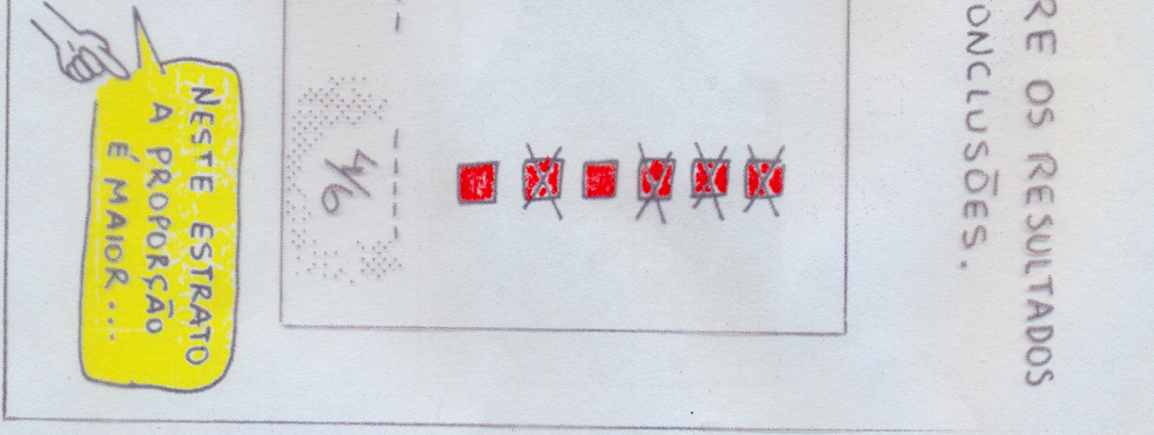 RE OS RESULTADOS
ONCLUSÕES.
4/6
NESTE ESTRATO
A PROPORÇÃO
É MAIOR...